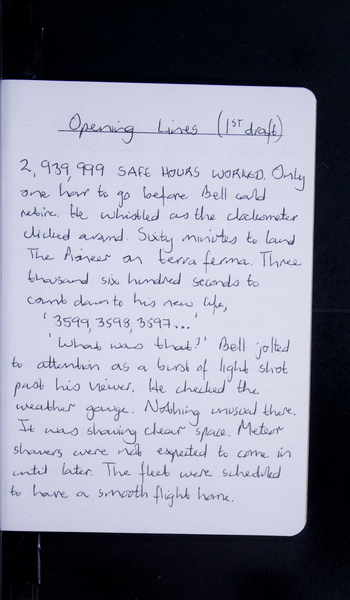 Opening Lines (1ST draft)
2,939,999 SAFE HOURS WORKED. Only
one hour to go before Bell could
retire. He whistled as the clockometer
clicked around. Sixty minutes to land
The Pioneer on terra ferma. Three
thousand six hundred seconds to
count down to his new life,
'3599, 3598, 3597...'
'What was that?' Bell jolted
to attention as a burst of light shot
past his viewer. He checked the
weather gauge. Nothing unusual there.
It was showing clear space. Meteor
showers were not expected to come in
until later. The fleet were scheduled
to have a smooth flight home.